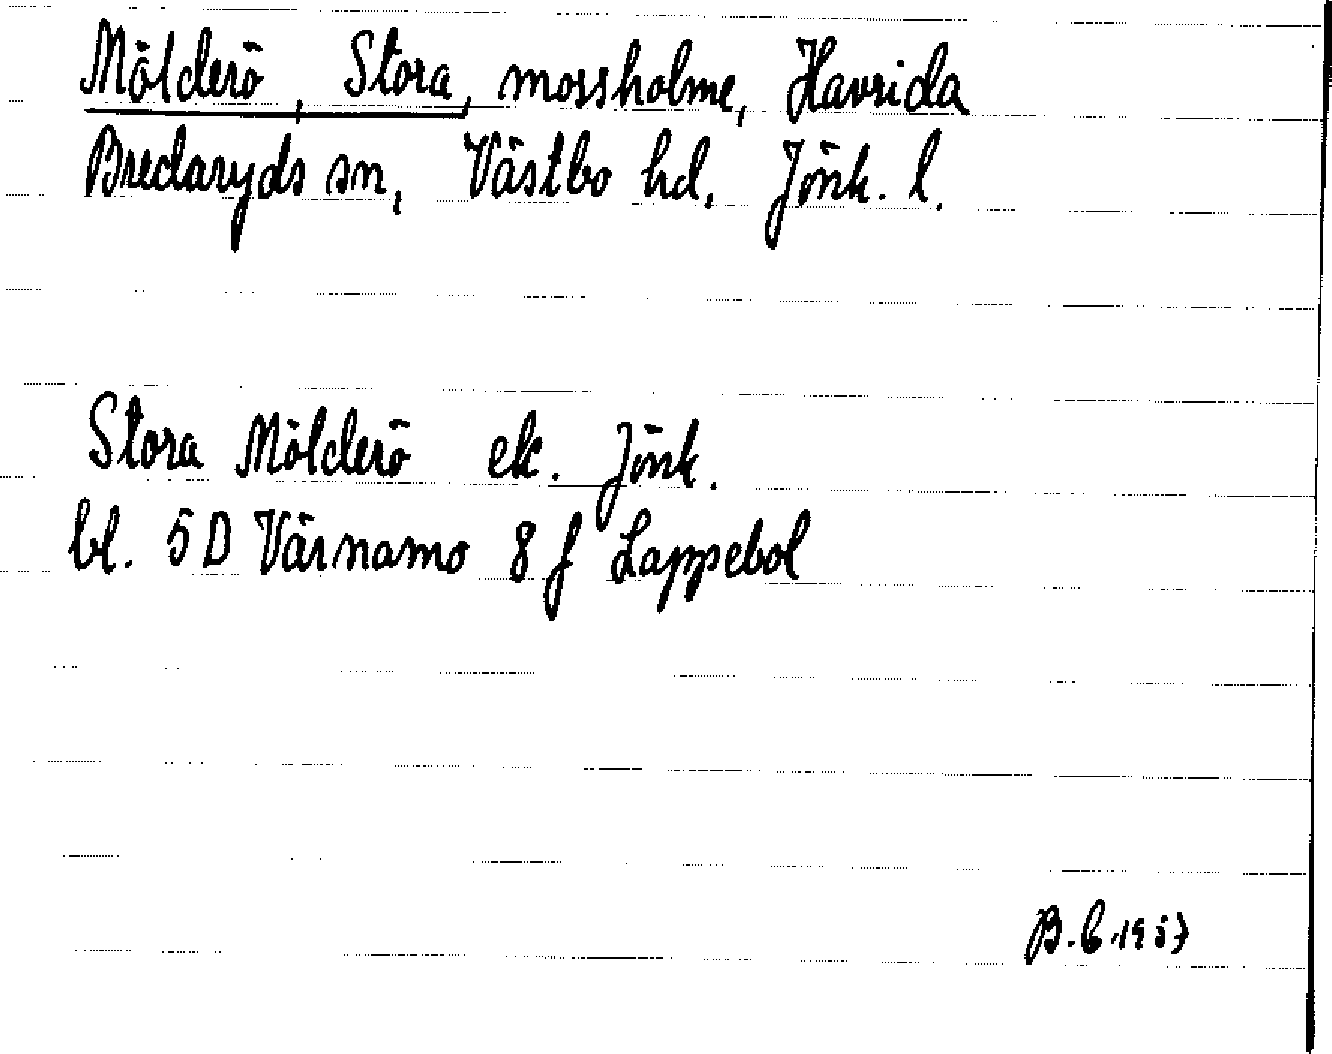 Mölderö, Stora, mossholme, Havrida
Bredaryds sn, Västbo hd, Jönk. l.
Stora Mölderö ek. Jönk.
bl. 5 D Värnamo 8 f Lappebol
B. C 1957